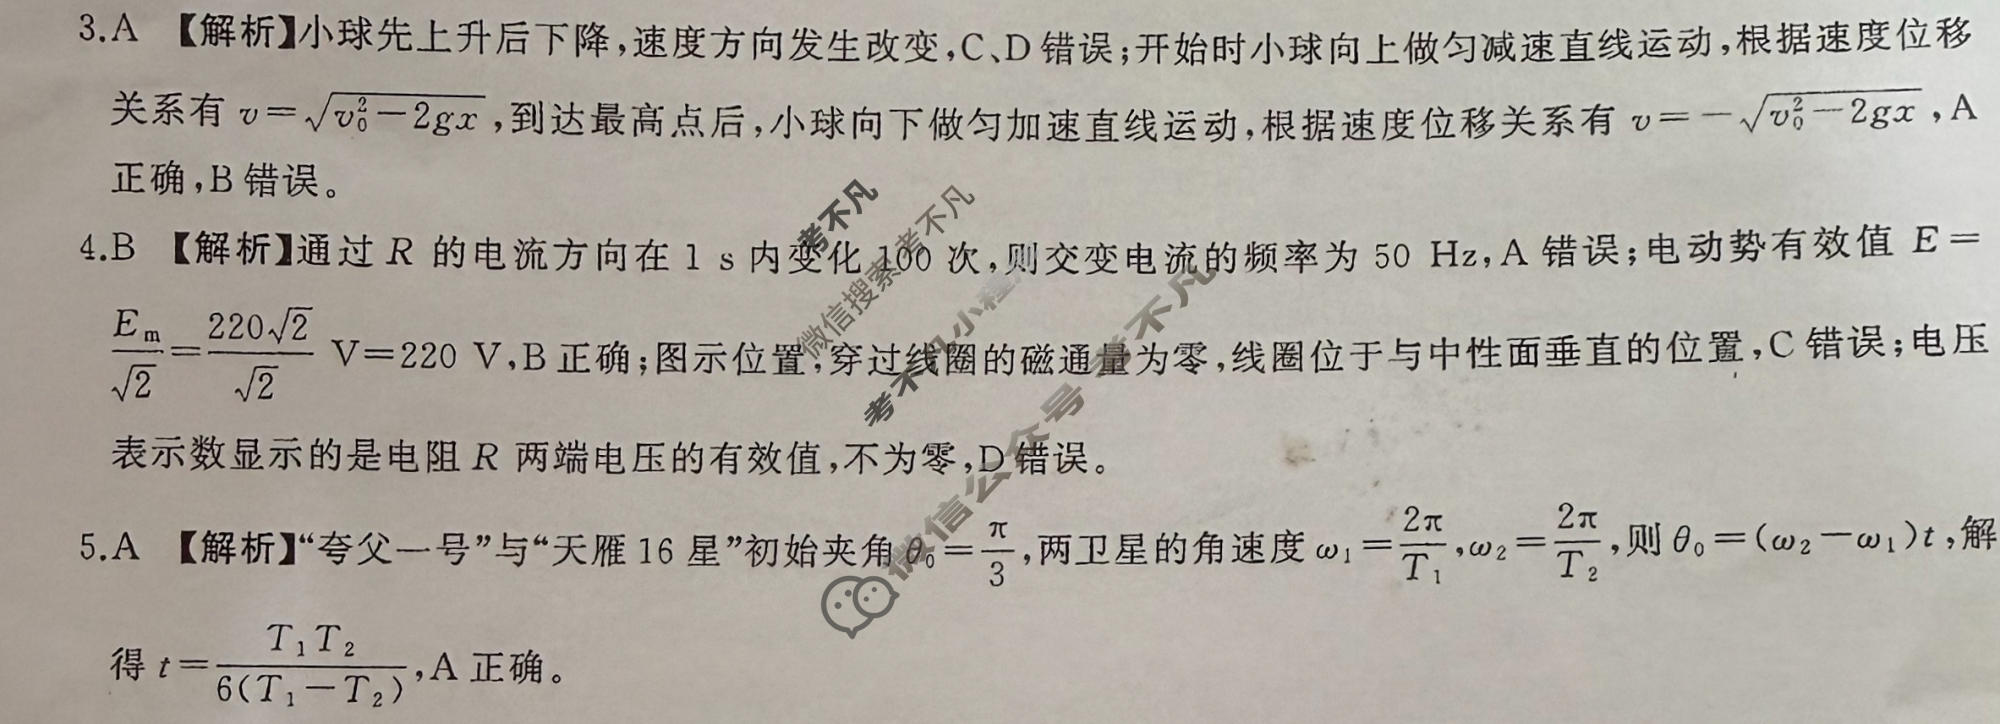 3.A 【解析】小球先上升后下降,速度方向发生改变,C、D错误;开始时小球向上做匀减速直线运动,根据速度位移
关系有 v=√(v₀²−2gx),到达最高点后,小球向下做匀加速直线运动,根据速度位移关系有 v=−√(v₀²−2gx),A
正确,B错误。
4.B 【解析】通过 R 的电流方向在 1 s 内变化 100 次,则交变电流的频率为 50 Hz,A 错误;电动势有效值 E=
Eₘ/√2=220√2/√2 V=220 V,B正确;图示位置,穿过线圈的磁通量为零,线圈位于与中性面垂直的位置,C错误;电压
表示数显示的是电阻 R 两端电压的有效值,不为零,D错误。
5.A 【解析】“夸父一号”与“天雁16星”初始夹角 θ₀=π/3,两卫星的角速度 ω₁=2π/T₁,ω₂=2π/T₂,则 θ₀=(ω₂−ω₁)t,解
得 t=T₁T₂/6(T₁−T₂),A正确。
考不凡
微信搜索考不凡
考不凡小程序
微信公众号 考不凡